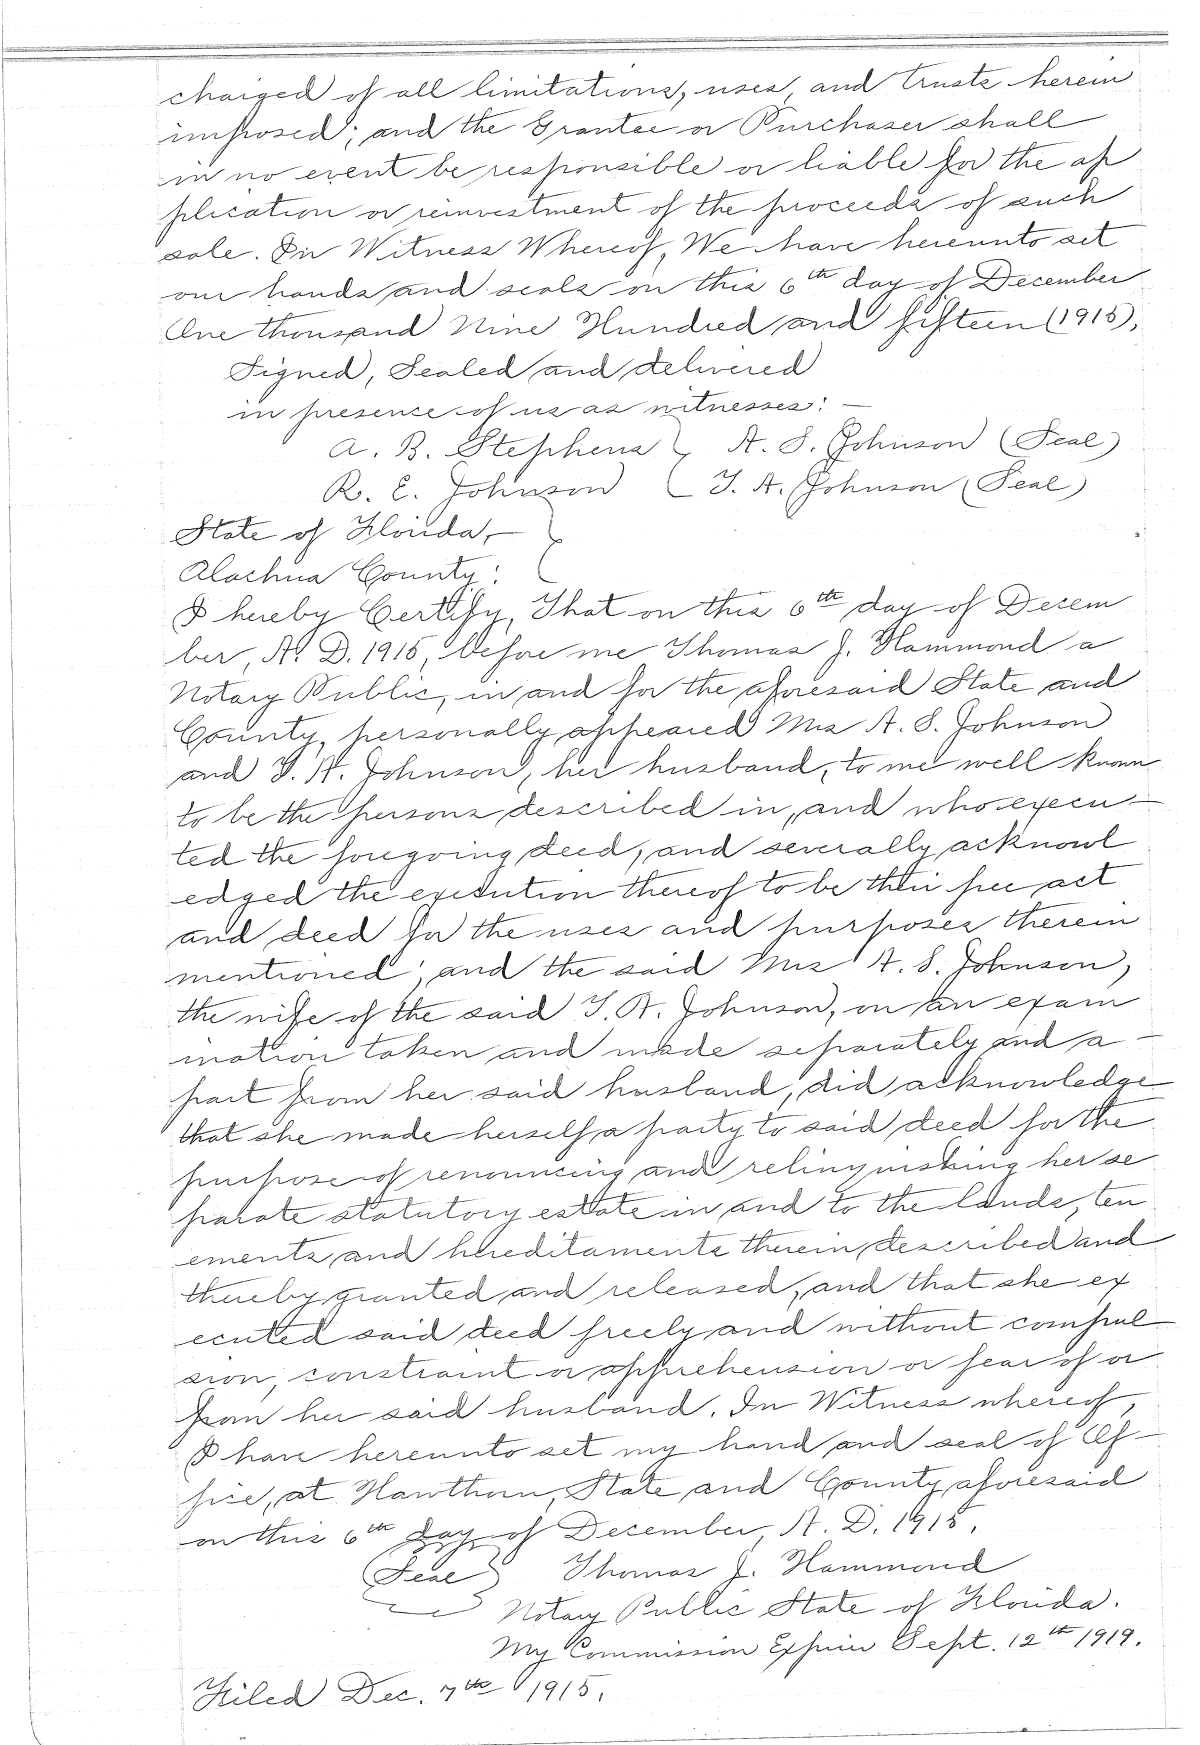 charged of all limitations, uses, and trusts herein
imposed; and the Grantee or Purchaser shall
in no event be responsible or liable for the ap
plication or reinvestment of the proceeds of such
sale. In Witness Whereof, We have hereunto set
our hands and seals on this 6th day of December
One thousand Nine Hundred and fifteen (1915).
Signed, Sealed and delivered
in presence of us as witnesses: —
A. B. Stephens } A. S. Johnson (Seal)
R. E. Johnson { T. A. Johnson (Seal)
State of Florida, —
Alachua County:
I hereby Certify, That on this 6th day of Decem
ber, A. D. 1915, before me Thomas J. Hammond a
Notary Public, in and for the aforesaid State and
County, personally appeared Mrs A. S. Johnson
and T. A. Johnson, her husband, to me well known
to be the persons described in, and who execu—
ted the foregoing deed, and severally acknowl
edged the execution thereof to be their free act
and deed for the uses and purposes therein
mentioned; and the said Mrs A. S. Johnson,
the wife of the said T. A. Johnson, on an exam
ination taken and made separately and a—
part from her said husband, did acknowledge
that she made herself a party to said deed for the
purpose of renouncing and relinquishing her se
parate statutory estate in and to the lands, ten
ements and hereditaments therein described and
thereby granted and released, and that she ex
ecuted said deed freely and without compul
sion, constraint or apprehension or fear of or
from her said husband. In Witness whereof,
I have hereunto set my hand and seal of Of—
fice, at Hawthorn, State and County aforesaid
on this 6th day of December, A. D. 1915.
(Seal) Thomas J. Hammond
Notary Public State of Florida.
My Commission Expires Sept. 12th 1919.
Filed Dec. 7th 1915.